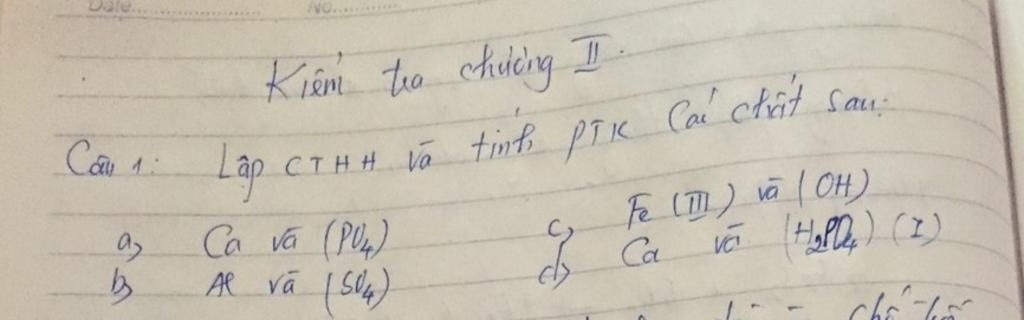 Date No.
Kiểm tra chương II.
Câu 1: Lập CTHH và tính PTK các chất sau:
a, Ca và (PO4) c, Fe (III) và (OH)
b, Al và (SO4) d, Ca và (H2PO4) (I)